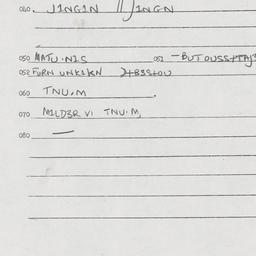 040. J1NG1N // J1NGN
050 MATU·N1S 051 —BUTOUSS+TAJS
052 FURN UNK1KN )+B3S+OU
060 TNU·M
070 M1LD3R V1 TNU·M,
080 —